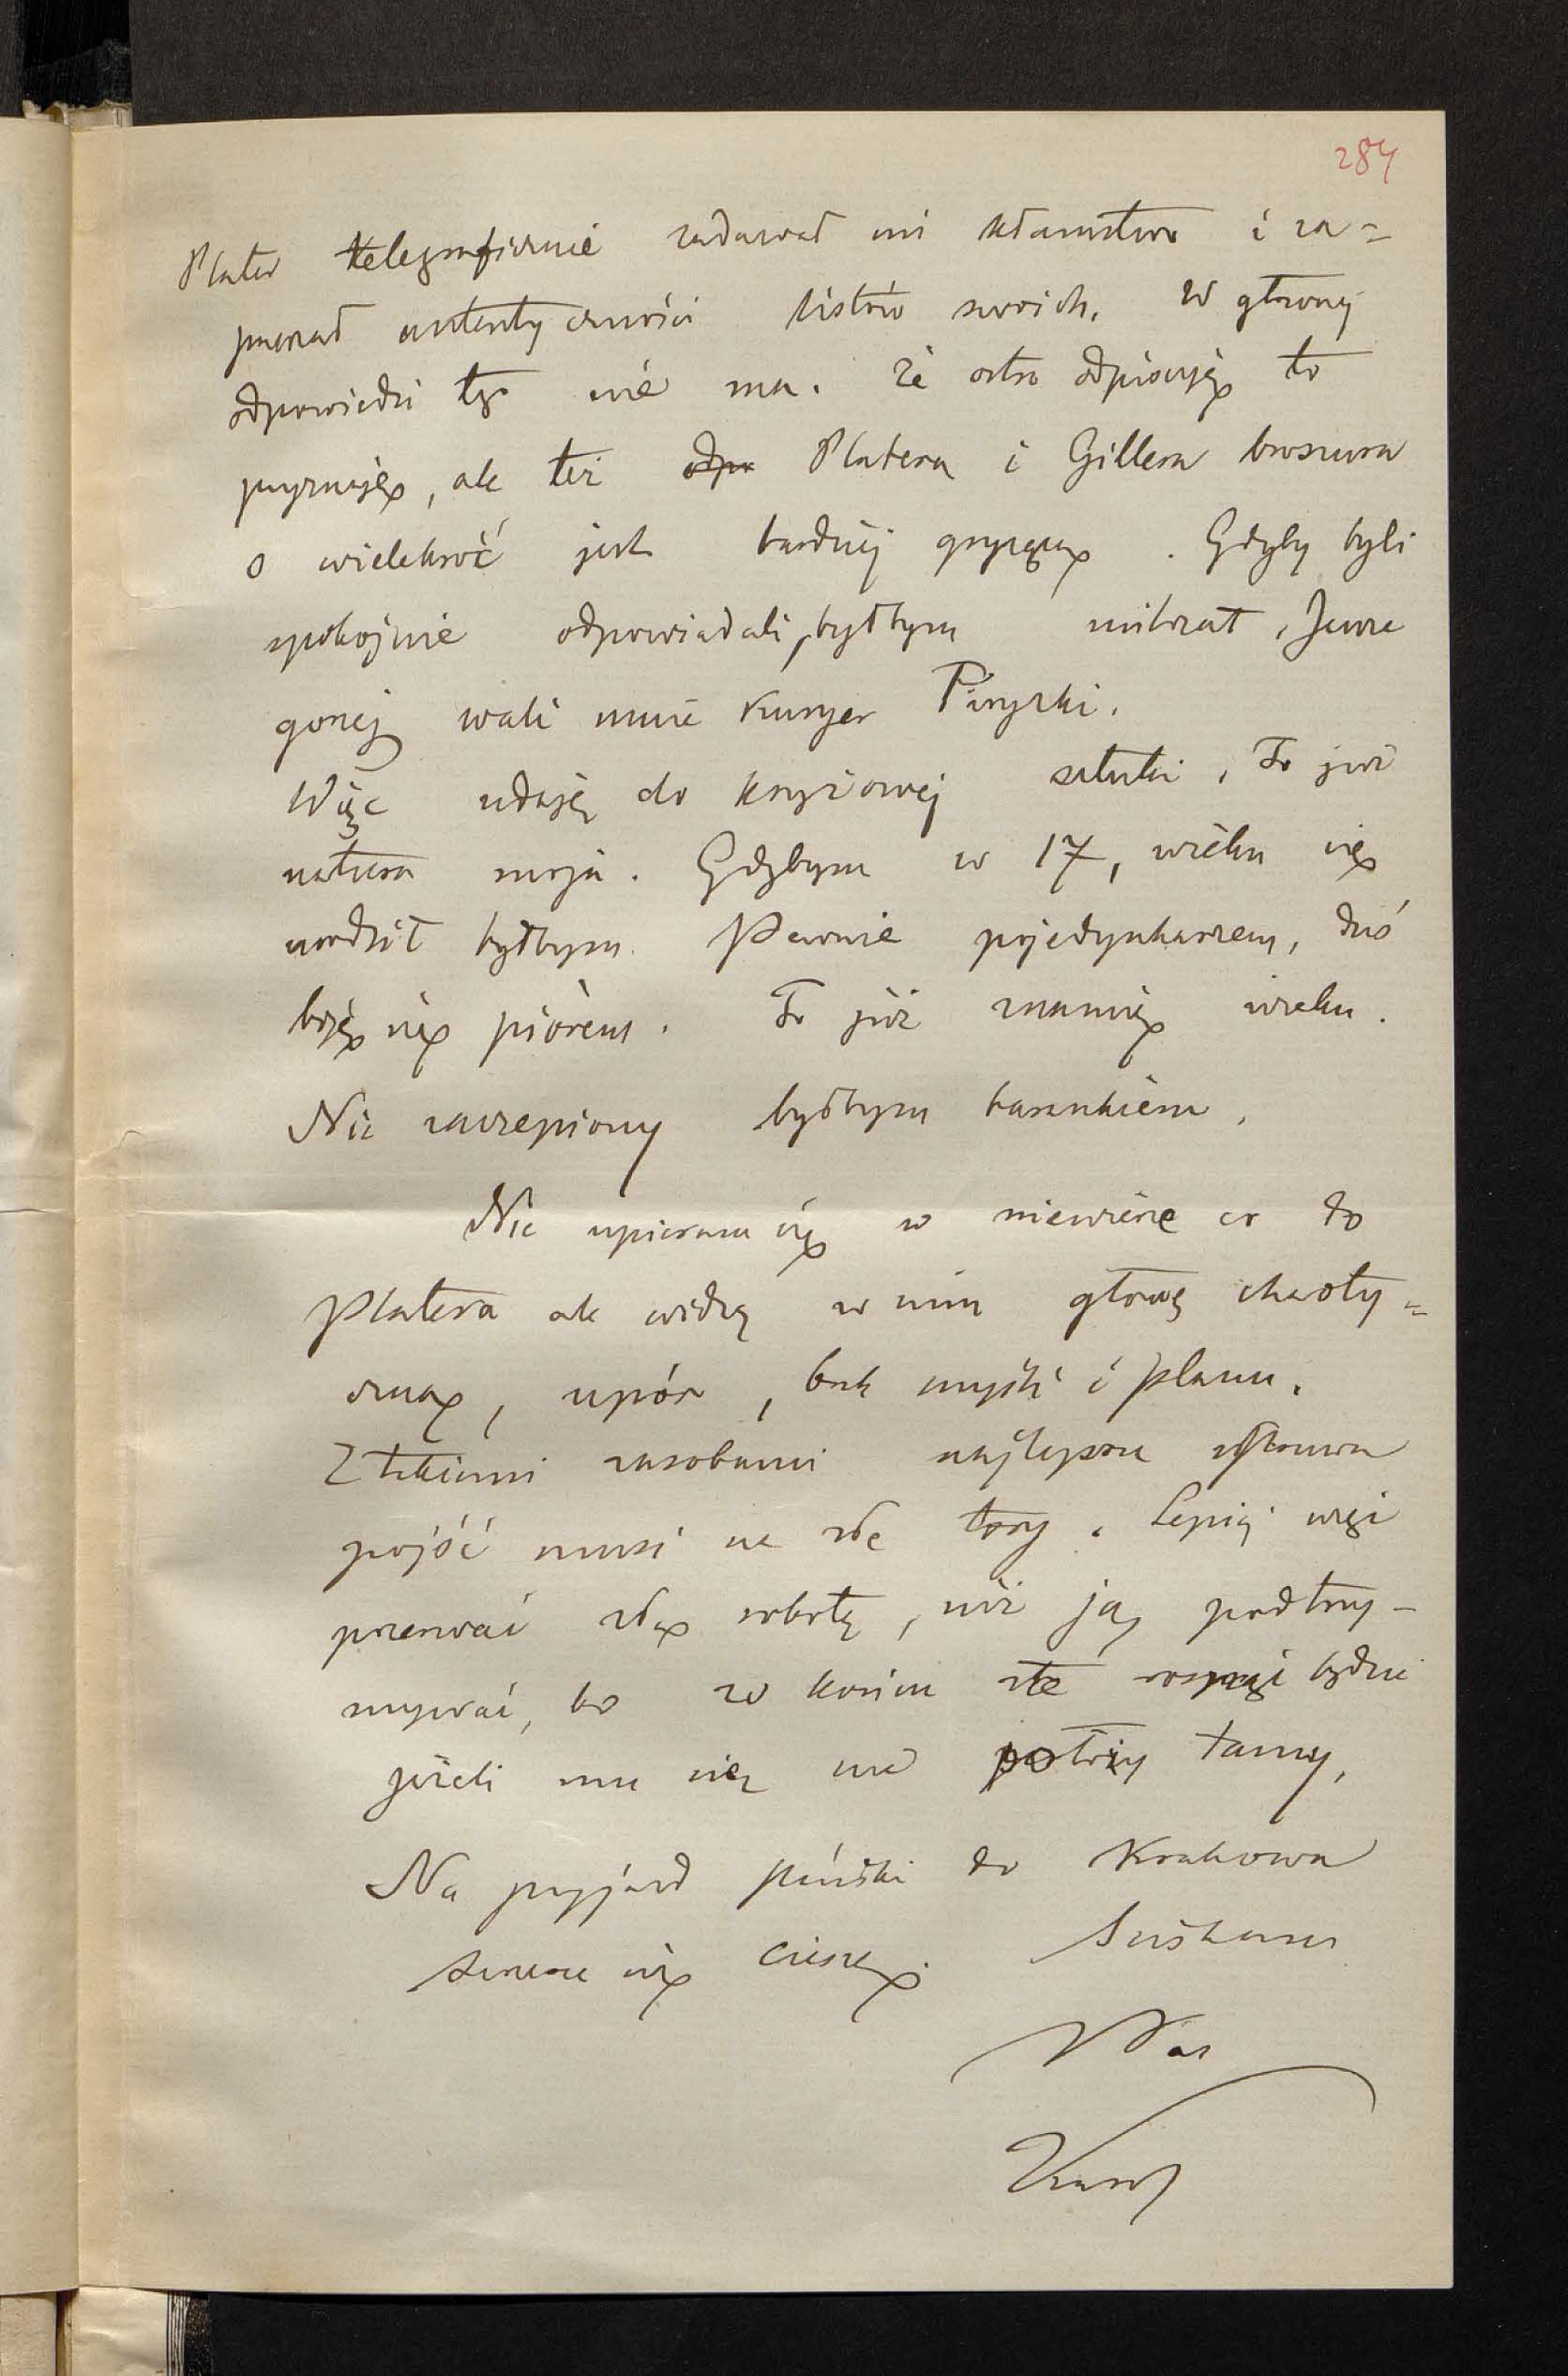 284
Plater telegraficznie zadawał mi kłamstwo i za=
przeczał autentyczności listów swoich. W głównej
odpowiedzi tego nie ma. Że ostro odpisuję to
przyznaję, ale też odpo Platera i Gillera broszura
o wielekroć jest bardziej gryząca. Gdyby byli
spokojnie odpowiadali, byłbym milczał, Jeszcze
gorzej wali mnie Kuryer Paryzki.
Więc udaję do krzyżowej sztuki, To już
natura moja. Gdybym w 17, wieku się
urodził byłbym Pewnie pojedynkarzem, dziś
biję się piórem. To już znamię wieku.
Nie zaczepiony byłbym barankiem.
Nie upieram się w niewierze co do
Platera ale widzę w nim głowę chaoty=
czną, upór, brak myśli i planu.
Z takiemi zasobami najlepsza sprawa
pójść musi na złe tory. Lepiej więc
przerwać złą robotę, niż ją podtrzy-
mywać, bo w końcu złe będzie
jeżeli mu się nie położy tamy,
Na przyjazd pański do Krakowa
szczerze się cieszę. Ściskam
Was